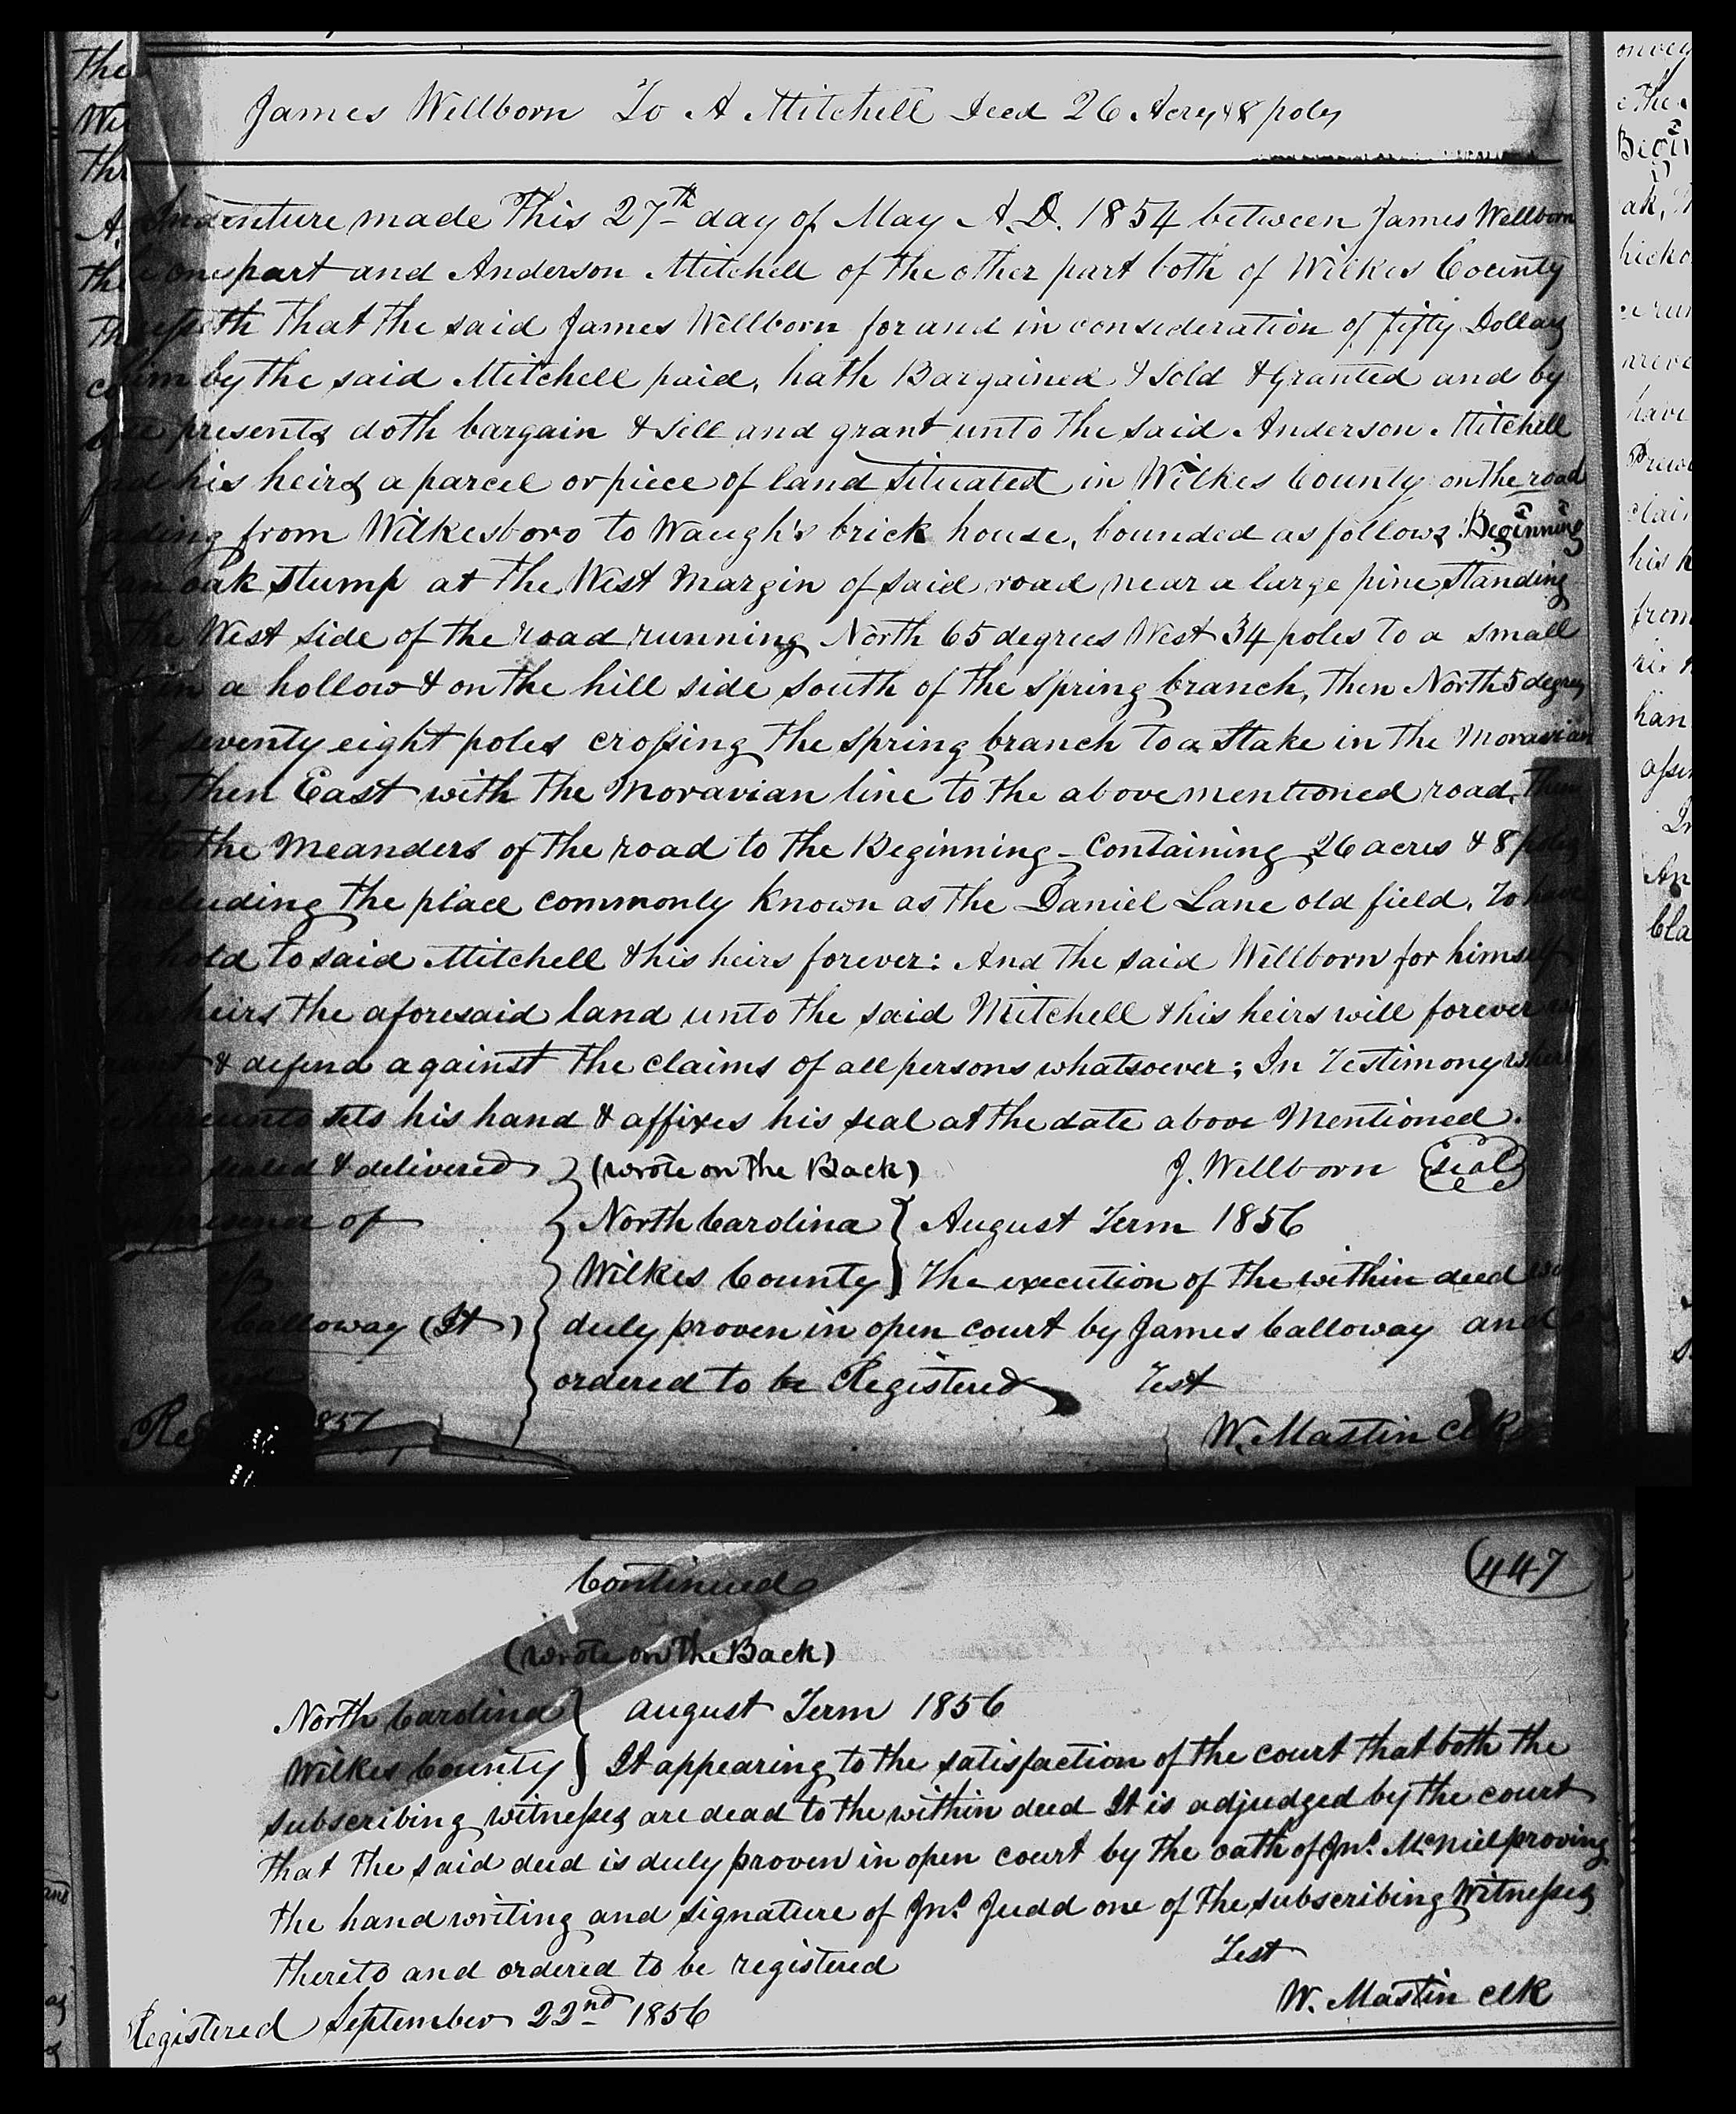 James Wellborn To A Mitchell Deed 26 Acres & 8 poles
Indenture made This 27th day of May A.D. 1854 between James Wellborn
the one part and Anderson Mitchell of the other part both of Wilkes County
that the said James Wellborn for and in consideration of fifty Dollars
him by the said Mitchell paid, hath Bargained & Sold & Granted and by
presents doth bargain & Sell and grant unto the said Anderson Mitchell
his heirs a parcel or piece of land situated in Wilkes County on the road
from Wilkesboro to Waugh's brick house, bounded as follows: Beginning
an oak stump at the West margin of said road near a large pine standing
the West side of the road running North 65 degrees West 34 poles to a small
in a hollow & on the hill side south of the Spring branch, then North 5 degrees
seventy eight poles crossing the Spring branch to a Stake in the Moravian
then East with the Moravian line to the above mentioned road, Then
the Meanders of the road to the Beginning - Containing 26 acres & 8 poles
including the place commonly known as the Daniel Lane old field, To have
hold to said Mitchell & his heirs forever: And the said Wellborn for himself
heirs the aforesaid land unto the said Mitchell & his heirs will forever
& defend against the claims of all persons whatsoever; In Testimony whereof
hereunto sets his hand & affixes his seal at the date above Mentioned.
sealed & delivered (wrote on the Back) J. Wellborn (seal)
presence of North Carolina } August Term 1856
Wilkes County } The execution of the within deed was
Calloway (Jt) duly proven in open court by James Calloway and
ordered to be Registered Test
W. Mastin clk
Continued (447
(wrote on the Back)
North Carolina } august Term 1856
Wilkes County } It appearing to the satisfaction of the court that both the
subscribing witnesses are dead to the within deed It is adjudged by the court
that the said deed is duly proven in open court by the oath of Jno. McNiel proving
the hand writing and signature of Jno. Judd one of the subscribing Witnesses
thereto and ordered to be registered Test
W. Mastin clk
Registered September 22nd 1856